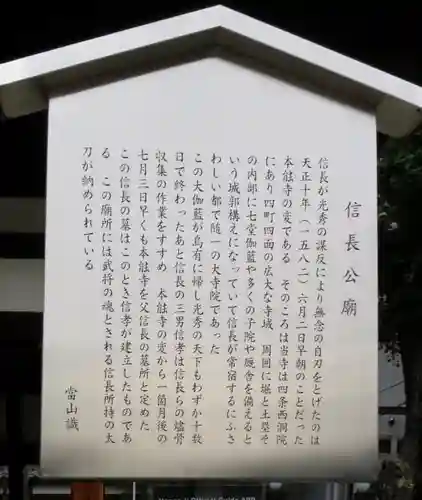 信長公廟
信長が光秀の謀反により無念の自刃をとげたのは
天正十年(一五八二)六月二日早朝のことだった
本能寺の変である そのころは当寺は四条西洞院
にあり四町四面の広大な寺域 周囲に堀と土塁そ
の内部に七堂伽藍や多くの子院や厩舎を備えると
いう城郭構えになっていて信長が常宿するにふさ
わしい都で随一の大寺院であった
この大伽藍が烏有に帰し光秀の天下もわずか十数
日で終わったあと信長の三男信孝は信長らの燼骨
収集の作業をすすめ 本能寺の変から一箇月後の
七月三日早くも本能寺を父信長の墓所と定めた
この信長の墓はこのとき信孝が建立したものであ
る この廟所には武将の魂とされる信長所持の太
刀が納められている
當山識